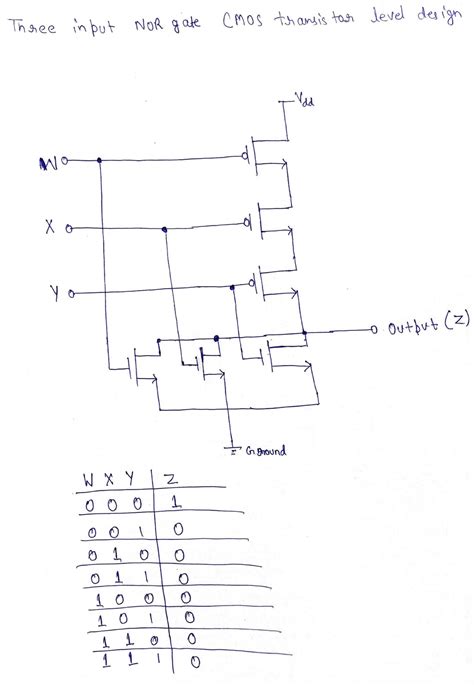 Three input NOR gate CMOS transistor level design
Vdd
W
X
Y
Output (Z)
Ground
W X Y Z
0 0 0 1
0 0 1 0
0 1 0 0
0 1 1 0
1 0 0 0
1 0 1 0
1 1 0 0
1 1 1 0